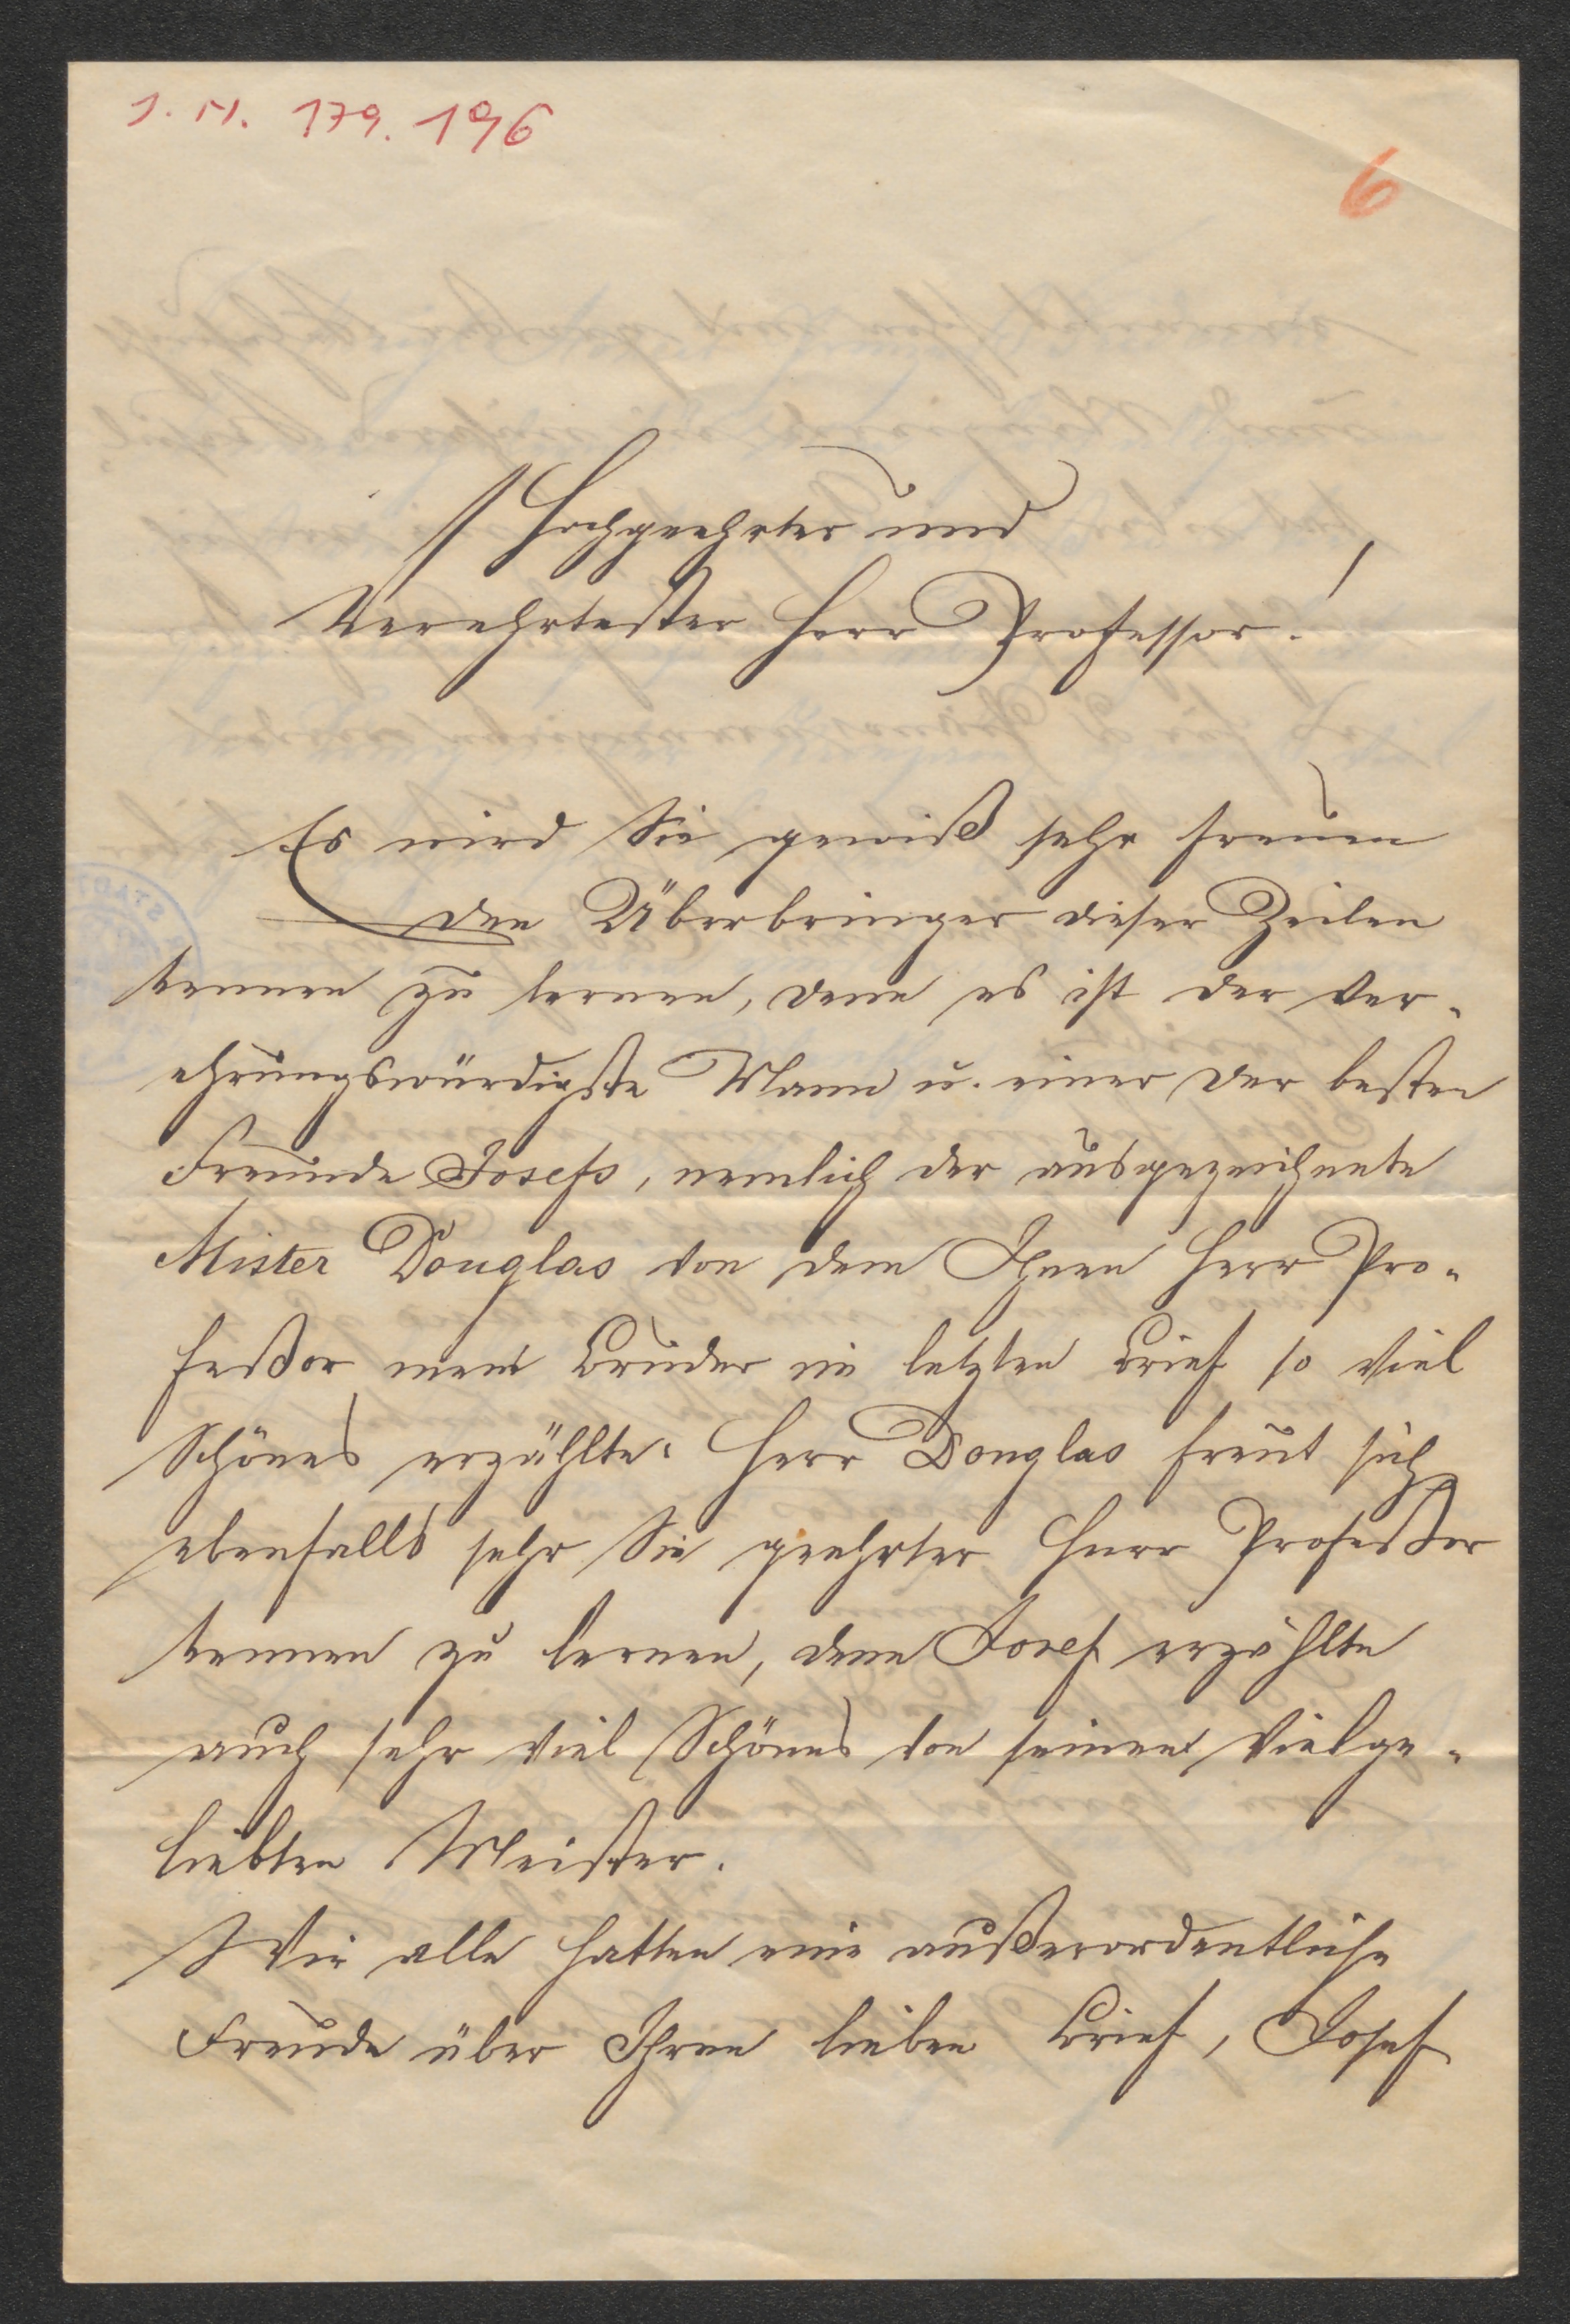 I. N. 179.196
6
Hochgeehrter und
Verehrtester Herr Professor!
Es wird Sie gewiß sehr freuen
den Überbringer dieser Zeilen
kennen zu lernen, denn es ist der ver-
ehrungswürdigste Mann u. einer der besten
Freunde Josefs, nemlich der ausgezeichnete
Mister Douglas von dem Ihnen Herr Pro-
feßor mein Bruder im letzten Brief so viel
Schönes erzählte. Herr Douglas freut sich
ebenfalls sehr Sie geehrter Herr Profeßor
kennen zu lernen, denn Josef erzählte
auch sehr viel Schönes von seinem vielge-
liebten Meister.
Wir alle hatten eine außerordentliche
Freude über Ihren lieben Brief, Josef